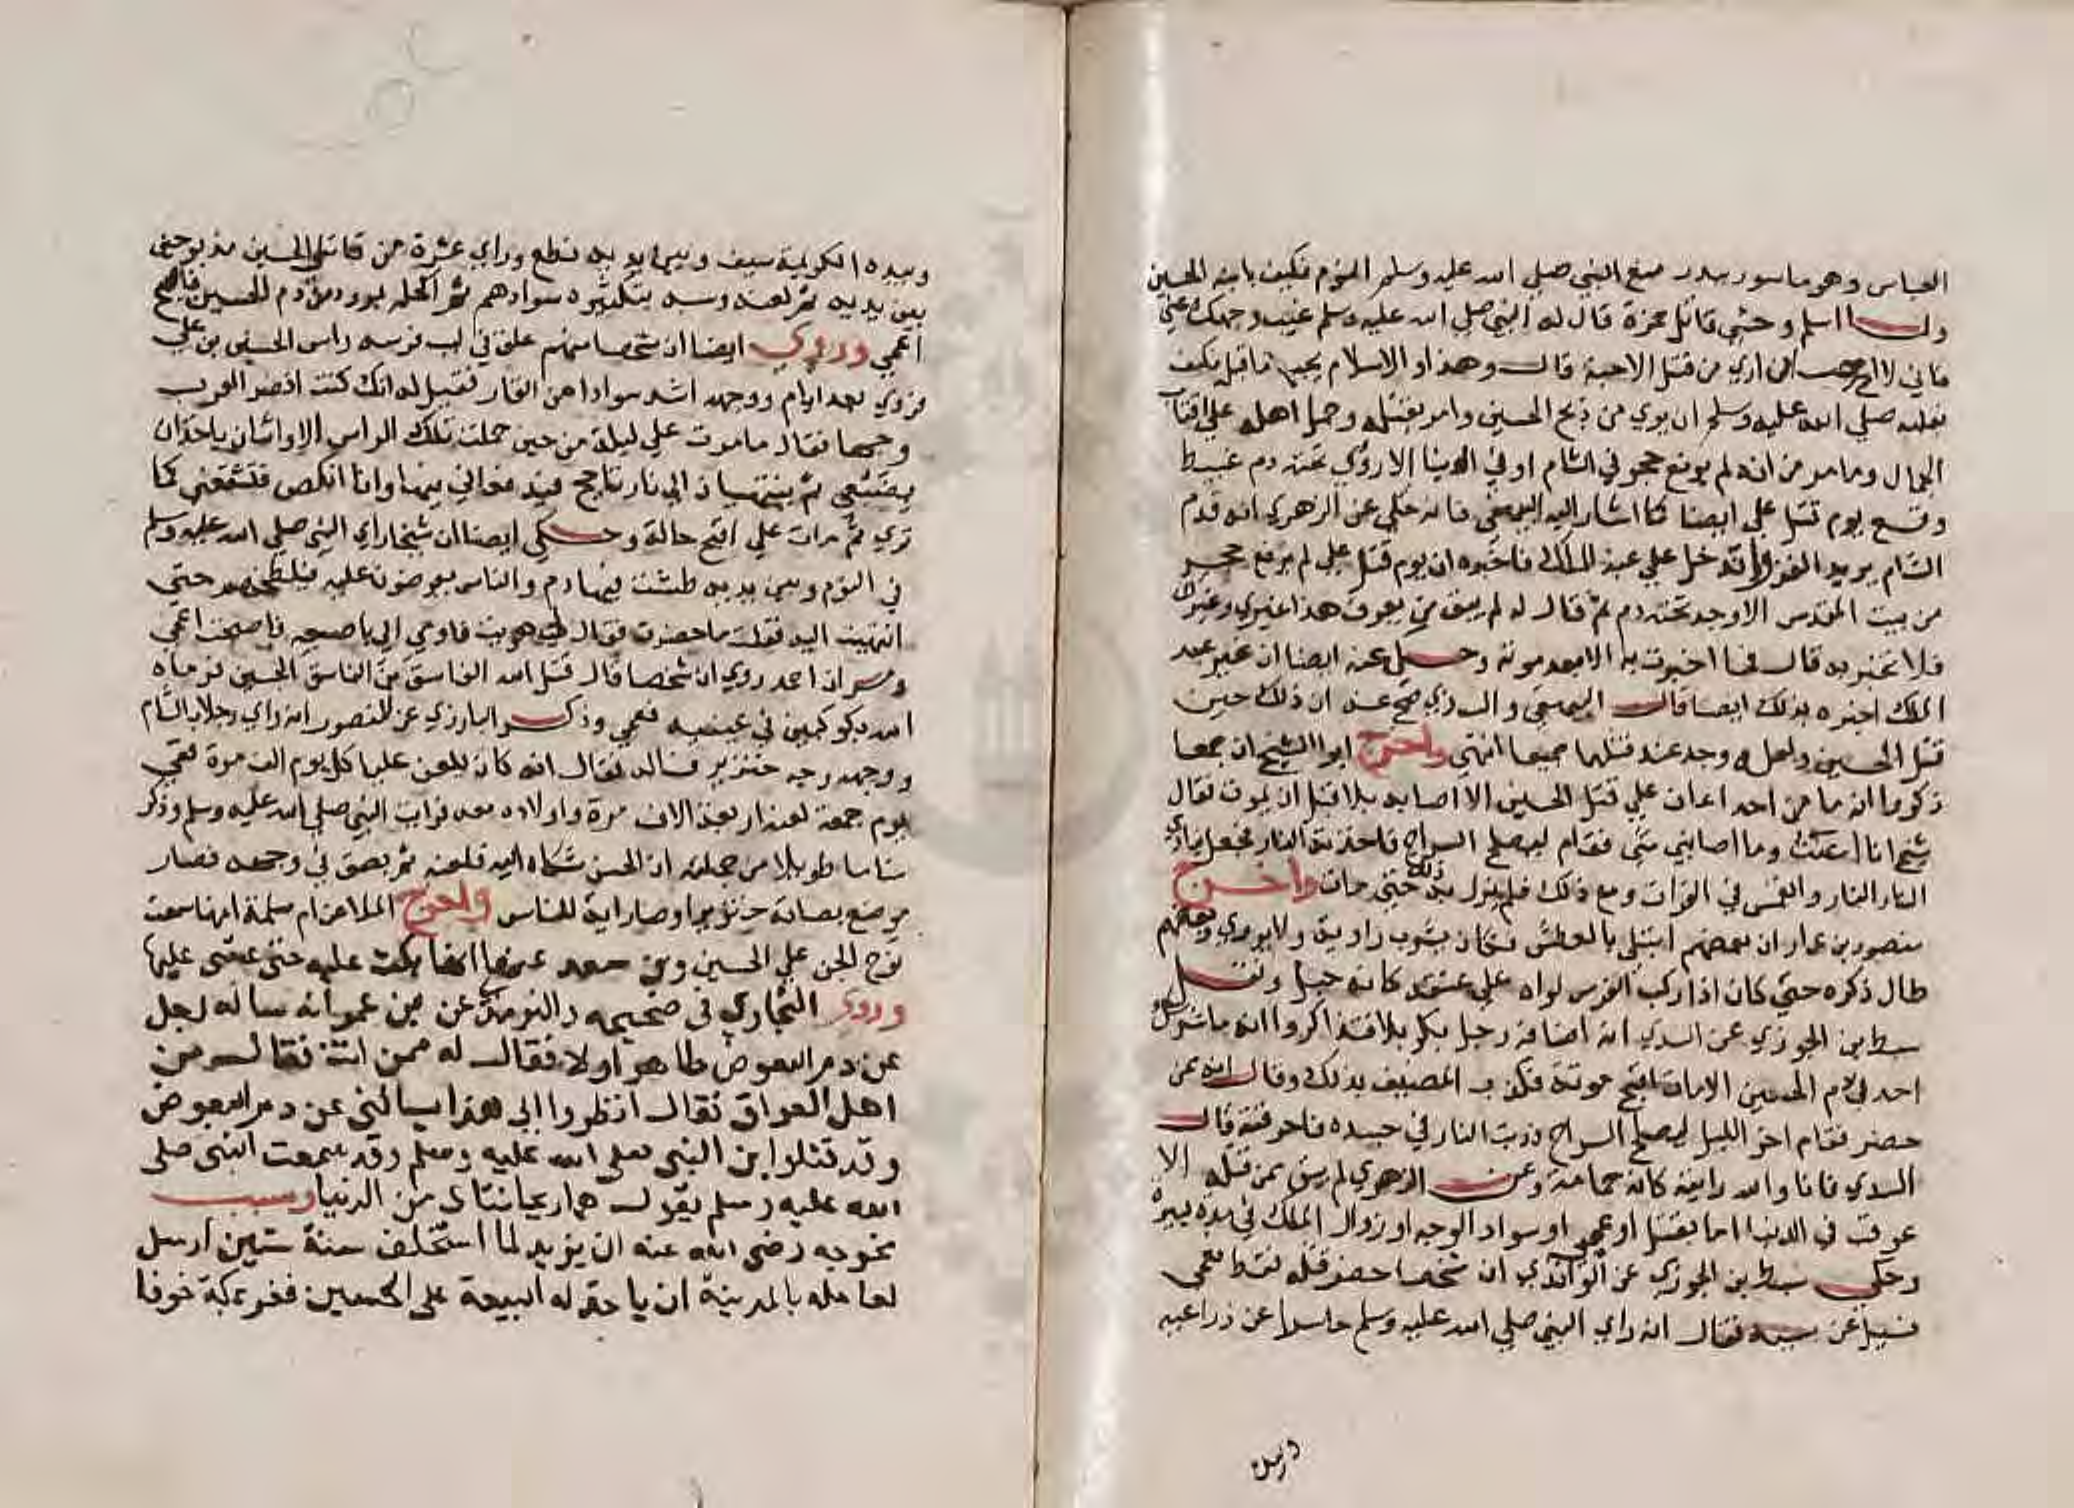 العباس وهو ماسور ببدر منع النبي صلي الله عليه وسلم النوم فكيف بانين الحسين
ولما اسلم وحشي قاتل حمزة قال له النبي صلي الله عليه وسلم غيب وجهك عني
فاني لا احب ان اري من قتل الاحبة قال وهذا والاسلام يجب ما قبله فكيف
بقلبه صلي الله عليه وسلم ان يري من ذبح الحسين وامر بقتله وحمل اهله علي اقتاب
الجمال وما مر من انه لم يرفع حجر في الشام او في الدنيا الا رؤي تحته دم عبيط
وقع يوم قتل علي ايضا كما اشار اليه البيهقي فانه حكي عن الزهري انه قدم
الشام يريد الغزو فدخل علي عبد الملك فاخبره ان يوم قتل علي لم يرفع حجر
من بيت المقدس الا وجد تحته دم ثم قال له لم يبق من يعرف هذا غيري وغيرك
فلا تخبر به قال فما اخبرت به الا بعد موته وحكي عنه ايضا ان غير عبد
الملك اخبره بذلك ايضا قال البيهقي والذي صح عنه ان ذلك حين
قتل الحسين ولعله وجد عند قتلهما جميعا انتهي واخرج ابو الشيخ ان جمعا
ذكروا انه ما من احد اعان علي قتل الحسين الا اصابه بلا قبل ان يموت فقال
شيخ انا اعنت وما اصابني شي فقام ليصلح السراج فاخذته النار فجعل ينادي
النار النار وانغمس في الفرات ومع ذلك فلم يزل به ذلك حتي مات واخرج
منصور بن عمار ان بعضهم ابتلي بالعطش فكان يشرب راوية ولا يروي وبعضهم
طال ذكره حتي كان اذا ركب الفرس لواه علي عنقه كانه حبل ونقل
سبط ابن الجوزي عن السدي انه اضافه رجل بكربلا فتذاكروا انه ما شرك
احد في دم الحسين الا مات اقبح موتة فكذب المضيف بذلك وقال انه ممن
حضر فقام اخر الليل ليصلح السراج فوثبت النار في جسده فاحرقته قال
السدي فانا والله رايته كانه حمامة وعن الزهري لم يبق ممن قتله الا
عوقب في الدنيا اما بقتل او عمي او سواد الوجه او زوال الملك في مدة يسيرة
وحكي سبط بن الجوزي عن الواقدي ان شخصا حضر قتله فقط فعمي
فسيل عن سببه فقال انه راي النبي صلي الله عليه وسلم حاسرا عن ذراعيه
وبيده الكريمة سيف وبين يديه نطع وراي عشرة من قاتلي الحسين مذبوحين
بين يديه ثم لعنه وسبه بتكثيره سوادهم ثم اكحله بمرود من دم الحسين فاصبح
اعمي وروي ايضا ان شخصا منهم علق في لب فرسه راس الحسين بن علي
فروي بعد ايام ووجهه اشد سوادا من القار فقيل له انك كنت انضر العرب
وجها فقال ما مرت علي ليلة من حين حملت تلك الراس الا واثنان ياخذان
بضبعي ثم ينتهيان الي نار تاجج فيدفعاني فيها وانا انكص فتسفعني كما
تري ثم مات علي اقبح حالة وحكي ايضا ان شيخا راي النبي صلي الله عليه وسلم
في النوم وبين يديه طشت فيها دم والناس يعرضون عليه فيلطخهم حتي
انتهيت اليه فقلت ما حضرت فقال لي هويت فاومي الي باصبعه فاصبحت اعمي
ومر ان احمد روي ان شخصا قال قتل الله الفاسق بن الفاسق الحسين فرماه
الله بكوكبين في عينيه فعمي وذكر البارزي عن المنصور انه راي رجلا بالشام
ووجهه وجه خنزير فساله فقال انه كان يلعن عليا كل يوم الف مرة ففي
يوم جمعة لعنه اربعة الاف مرة واولاده معه فرايت النبي صلي الله عليه وسلم وذكر
مناما طويلا من جملته ان الحسن شكاه اليه فلعنه ثم بصق في وجهه فصار
موضع بصاقه خنزيرا وصار اية للناس واخرج الملا عن ام سلمة انها سمعت
نوح الجن علي الحسين وبن سعد عنها انها بكت عليه حتي غشي عليها
وروي البخاري في صحيحه والترمذي عن بن عمر انه ساله رجل
عن دم البعوض طاهر اولا فقال له ممن انت فقال من
اهل العراق فقال انظروا الي هذا يسالني عن دم البعوض
وقد قتلوا بن النبي صلي الله عليه وسلم وقد سمعت النبي صلي
الله عليه وسلم يقول هما ريحانتاي من الدنيا وسبب
مخرجه رضي الله عنه ان يزيد لما استخلف سنة ستين ارسل
لعامله بالمدينة ان ياخذ له البيعة علي الحسين ففر لمكة خوفا